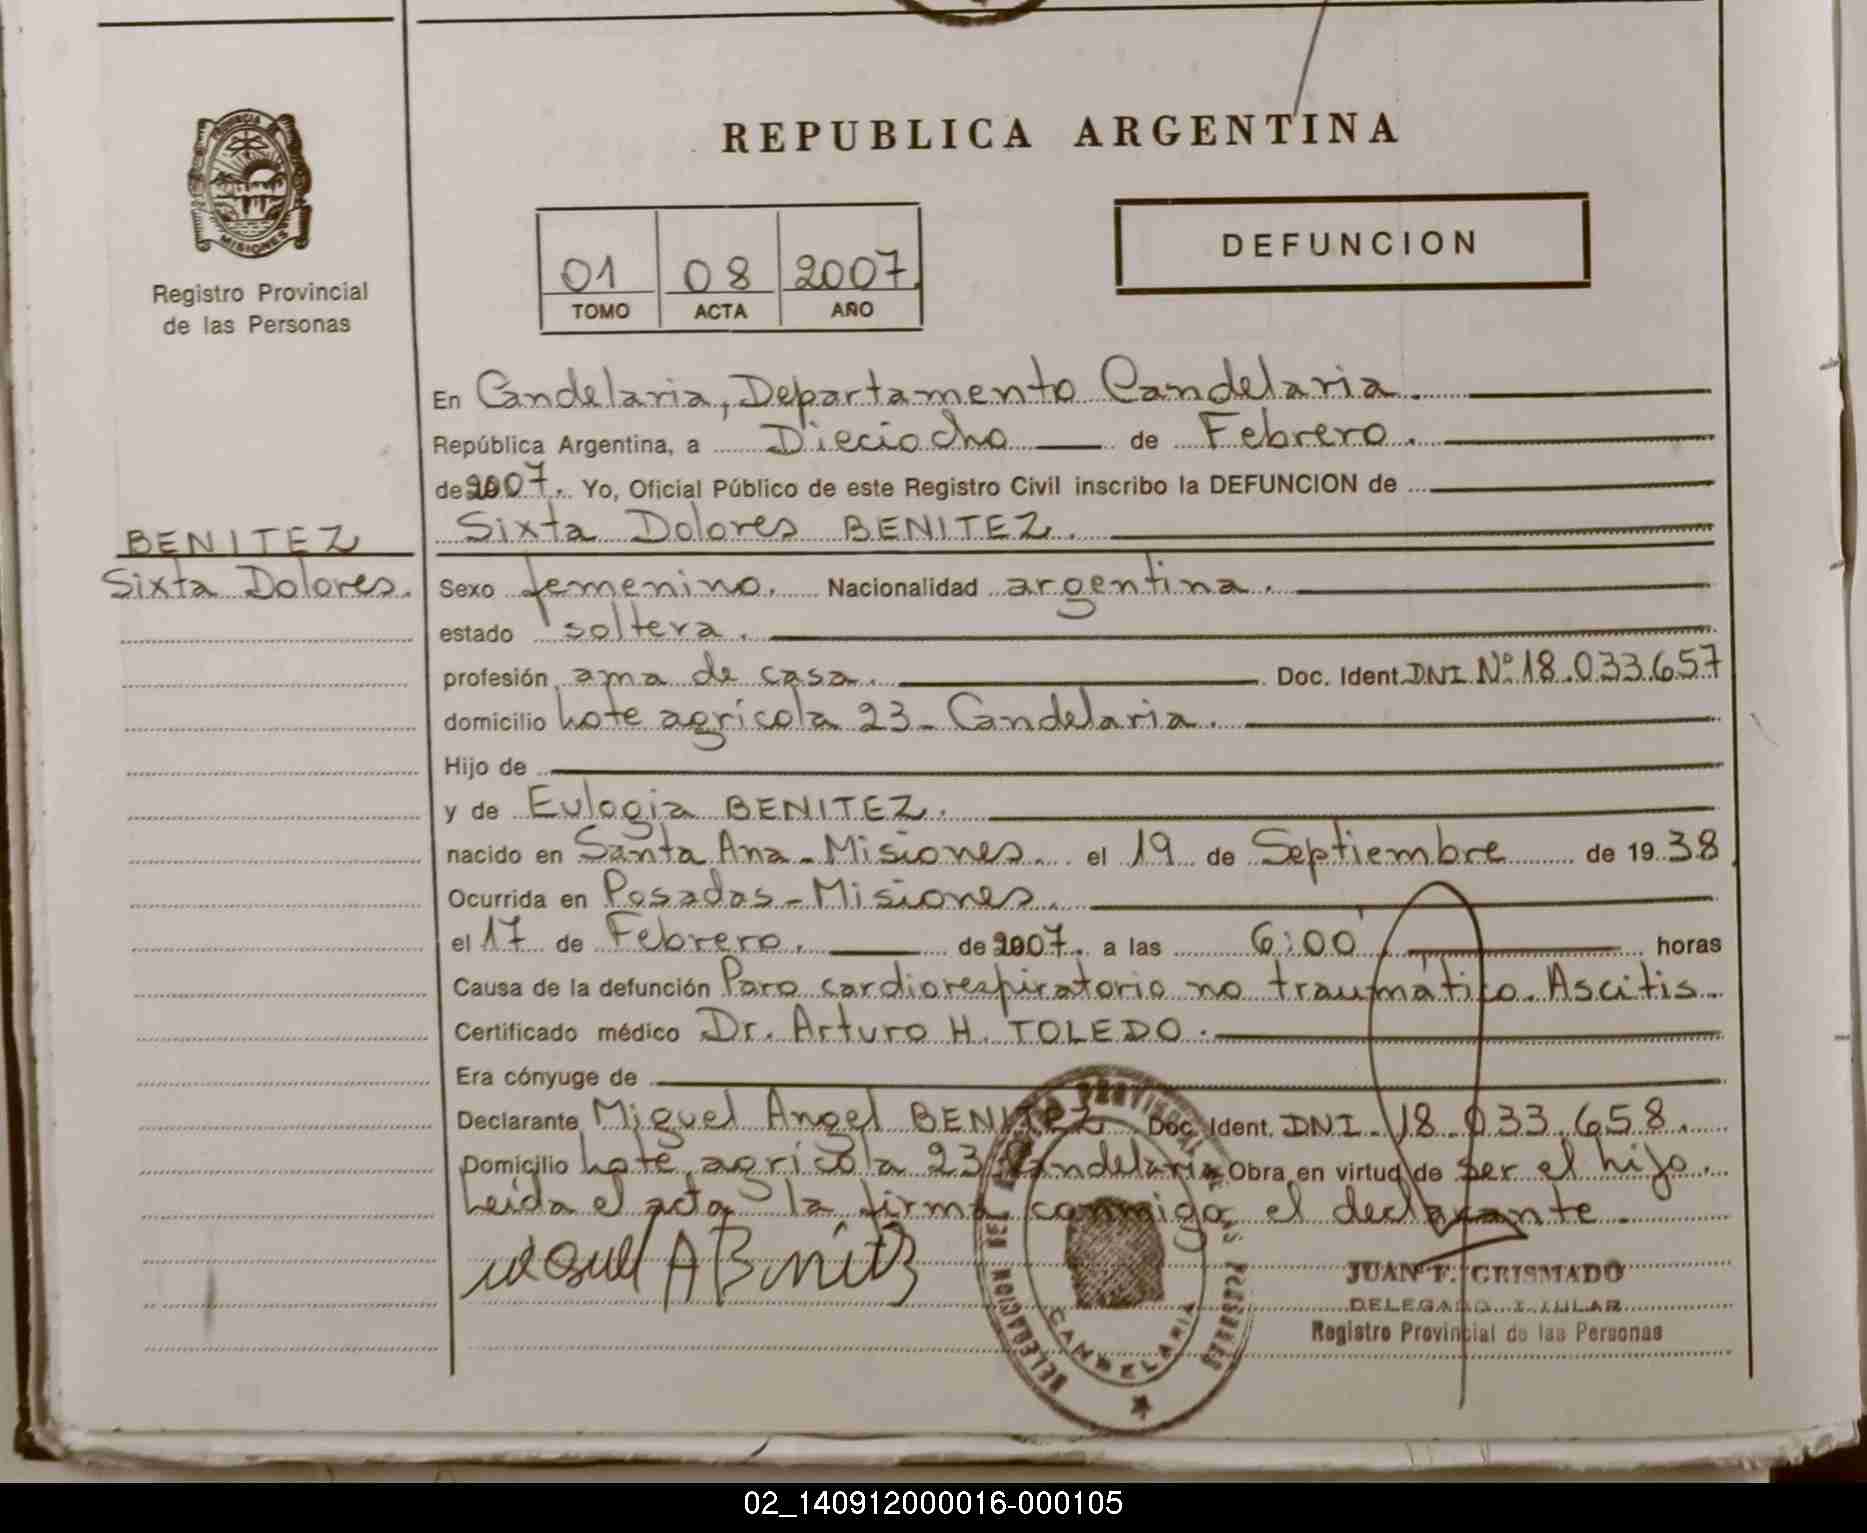 REPUBLICA ARGENTINA
PROVINCIA DE
MISIONES
Registro Provincial
de las Personas
01 08 2007
TOMO ACTA AÑO
DEFUNCION
En Candelaria, Departamento Candelaria.
República Argentina, a Dieciocho de Febrero.
de 2007. Yo, Oficial Público de este Registro Civil inscribo la DEFUNCION de
Sixta Dolores BENITEZ.
BENITEZ
Sixta Dolores.
Sexo femenino. Nacionalidad argentina.
estado soltera.
profesión ama de casa. Doc. Ident. DNI Nº 18.033.657
domicilio Lote agrícola 23 - Candelaria.
Hijo de
y de Eulogia BENITEZ.
nacido en Santa Ana - Misiones. el 19 de Septiembre de 1938
Ocurrida en Posadas - Misiones.
el 17 de Febrero. de 2007. a las 6:00 horas
Causa de la defunción Paro cardiorespiratorio no traumático. Ascitis.
Certificado médico Dr. Arturo H. TOLEDO.
Era cónyuge de
Declarante Miguel Angel BENITEZ Doc. Ident. DNI 18.033.658.
Domicilio Lote agrícola 23 Candelaria Obra en virtud de ser el hijo.
Leída el acta la firma conmigo, el declarante.
JUAN F. CRISMADO
DELEGADO TITULAR
Registro Provincial de las Personas
DELEGACION
CANDELARIA
02_140912000016-000105